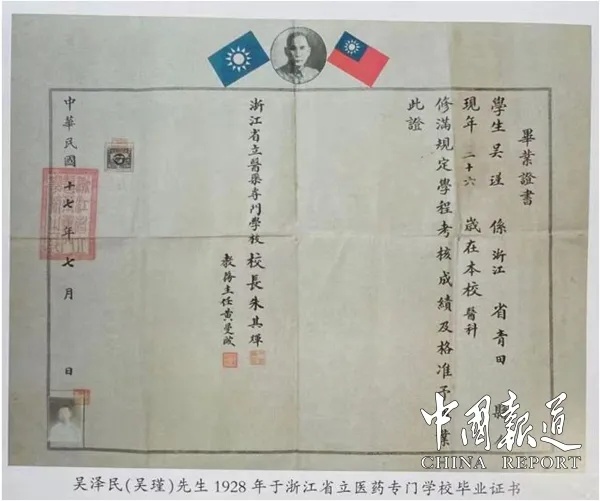 畢業證書
學生 吳瑾 係 浙江 省 青田 縣人
現年 二十六 歲在本校 醫科
修滿規定學程考核成績及格准予 業
此證
浙江省立醫藥專門學校 校長 朱其輝
教務主任 黃曼
中華民國 十七 年 七 月 日
中國報道
CHINA REPORT
吴泽民(吴瑾)先生1928年于浙江省立医药专门学校毕业证书